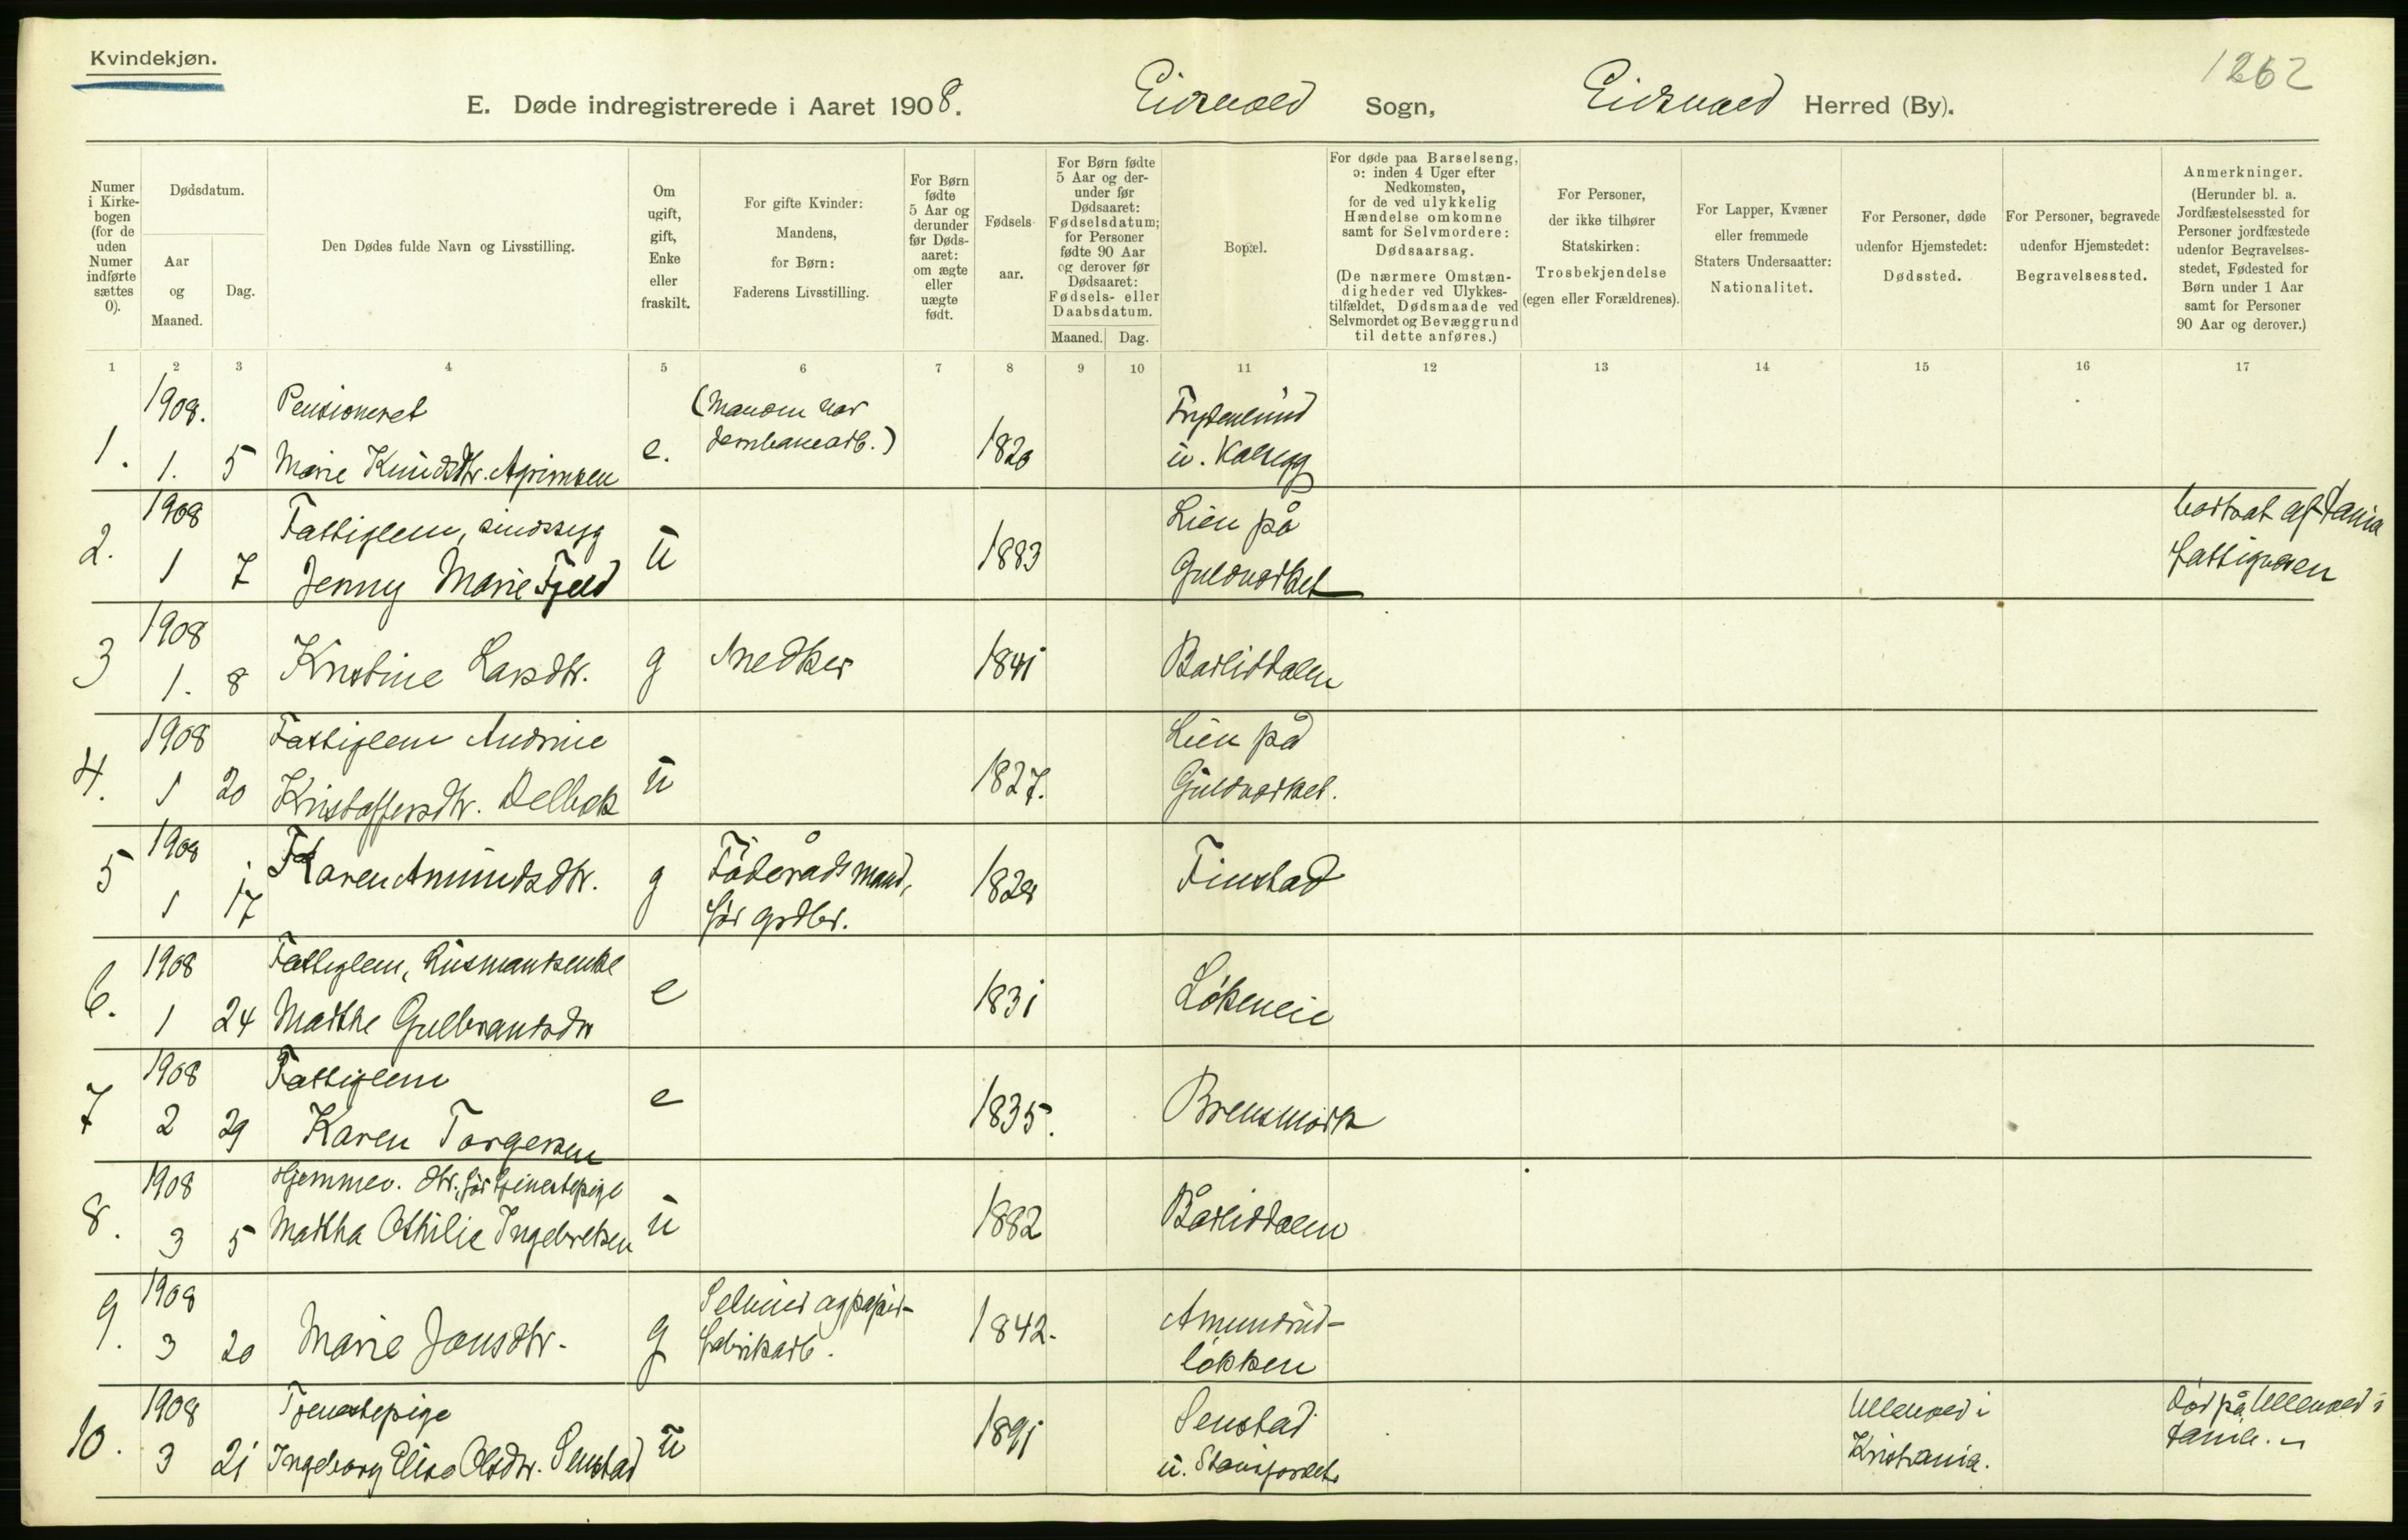 Kvindekjøn.
1262
E. Døde indregistrerede i Aaret 1908. Eidsvold Sogn, Eidsvold Herred (By).
Numer i Kirkebogen (for de uden Numer indførte sættes 0).
Dødsdatum.
Aar og Maaned.
Dag.
Den Dødes fulde Navn og Livsstilling.
Om ugift, gift, Enke eller fraskilt.
For gifte Kvinder: Mandens, for Børn: Faderens Livsstilling.
For Børn fødte 5 Aar og derunder før Dødsaaret: om ægte eller uægte født.
Fødselsaar.
For Børn fødte 5 Aar og derunder før Dødsaaret: Fødselsdatum; for Personer fødte 90 Aar og derover før Dødsaaret: Fødsels- eller Daabsdatum.
Maaned. Dag.
Bopæl.
For døde paa Barselseng, ɔ: inden 4 Uger efter Nedkomsten, for de ved ulykkelig Hændelse omkomne samt for Selvmordere: Dødsaarsag.
(De nærmere Omstændigheder ved Ulykkestilfældet, Dødsmaade ved Selvmordet og Bevæggrund til dette anføres.)
For Personer, der ikke tilhører Statskirken: Trosbekjendelse (egen eller Forældrenes).
For Lapper, Kvæner eller fremmede Staters Undersaatter: Nationalitet.
For Personer, døde udenfor Hjemstedet: Dødssted.
For Personer, begravede udenfor Hjemstedet: Begravelsessted.
Anmerkninger.
(Herunder bl. a. Jordfæstelsessted for Personer jordfæstede udenfor Begravelsesstedet, Fødested for Børn under 1 Aar samt for Personer 90 Aar og derover.)
1 2 3 4 5 6 7 8 9 10 11 12 13 14 15 16 17
1. 1908. 1. 5 Pensioneret Marie Knudsdtr. e. (Manden var jernbanearb.) 1820 Frydenlund u.
2. 1908 1 7 Fattiglem, sindssyg Jenny Marie Fjeld u 1883 Lien på Guldverket fattigvæsen
3 1908 1. 8 Kristine Larsdtr. g Snedker 1841 Barliddalen
4. 1908 1 20 Fattiglem Andrine Kristoffersdtr. u 1827. Lien på Guldverket.
5 1908 1 17 Karen Amundsdtr. g Föderådsmand, før grdbr. 1828 Finstad
6. 1908 1 24 Fattiglem, Husmandsenke Marthe Gulbrandsdtr e 1831 Løkeneie
7 1908 2 29 Fattiglem Karen Torgersen e 1835. Brensmork
8. 1908 3 5 Hjemmev. dtr. før tjenestepige Martha Othilie Ingebretsen u 1882 Bårliddalen
9. 1908 3 20 Marie Jonsdtr. g Selveier og papirfabrikarb. 1842. Amundrudløkken
10. 1908 3 21 Tjenestepige Ingeborg Elise Olsdtr. Senstad u 1891 Senstad u. Ullevold i Kristiania. død på Ullevold i